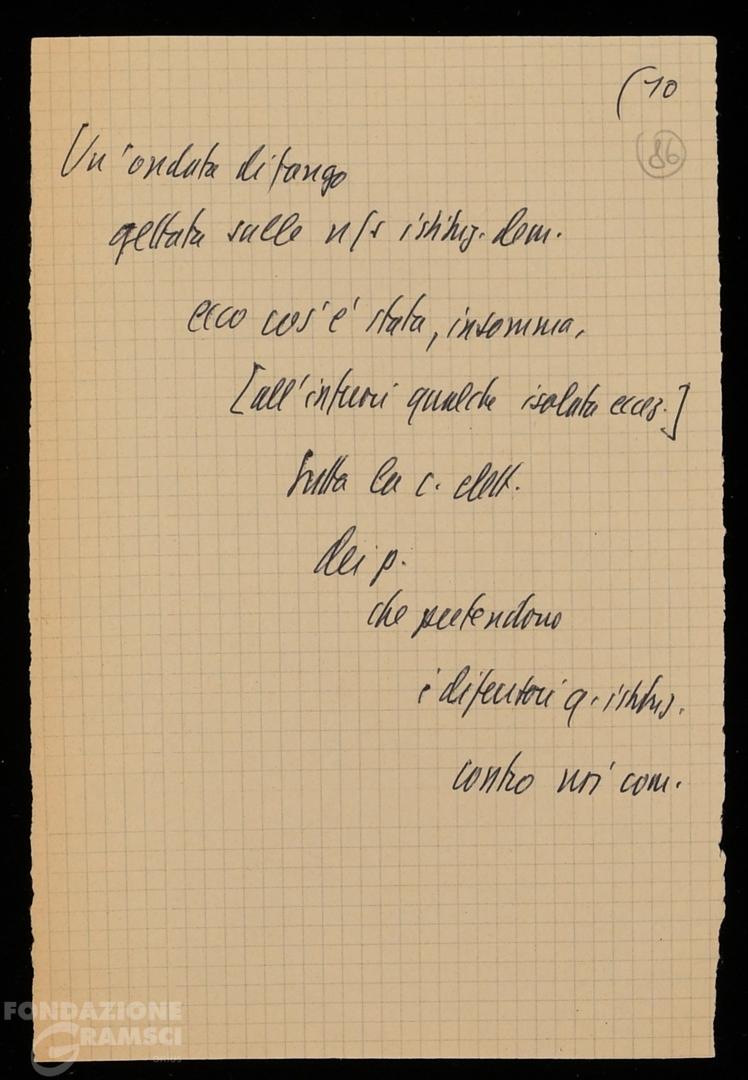 (10
86
Un'ondata di fango
gettata sulle n/s istituz. dem.
ecco cos'è stata, insomma,
[all'infuori qualche isolata eccez.]
tutta la c. elett.
dei p.
che pretendono
i difensori q. istituz.
contro noi com.
FONDAZIONE
GRAMSCI
onlus